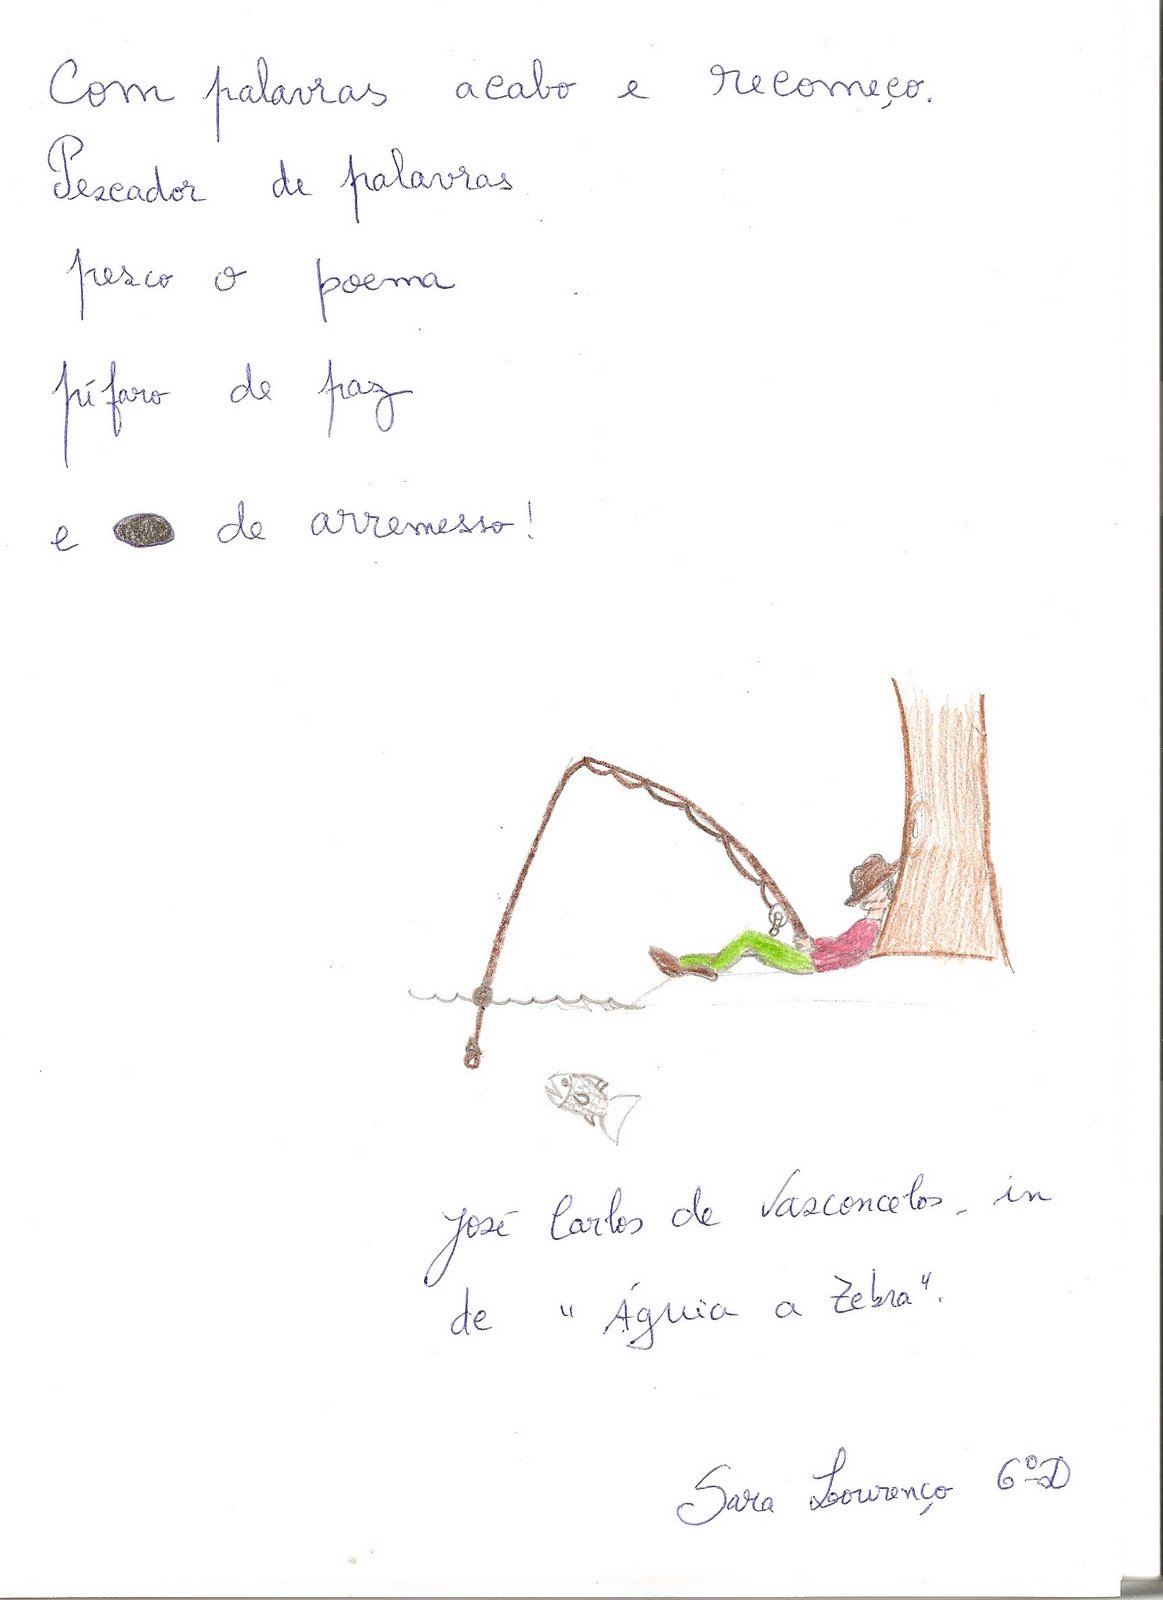 Com palavras acabo e recomeço.
Pescador de palavras
pesco o poema
pífaro de paz
e de arremesso!
José Carlos de Vasconcelos, in
de "Águia a Zebra".
Sara Lourenço 6ºD